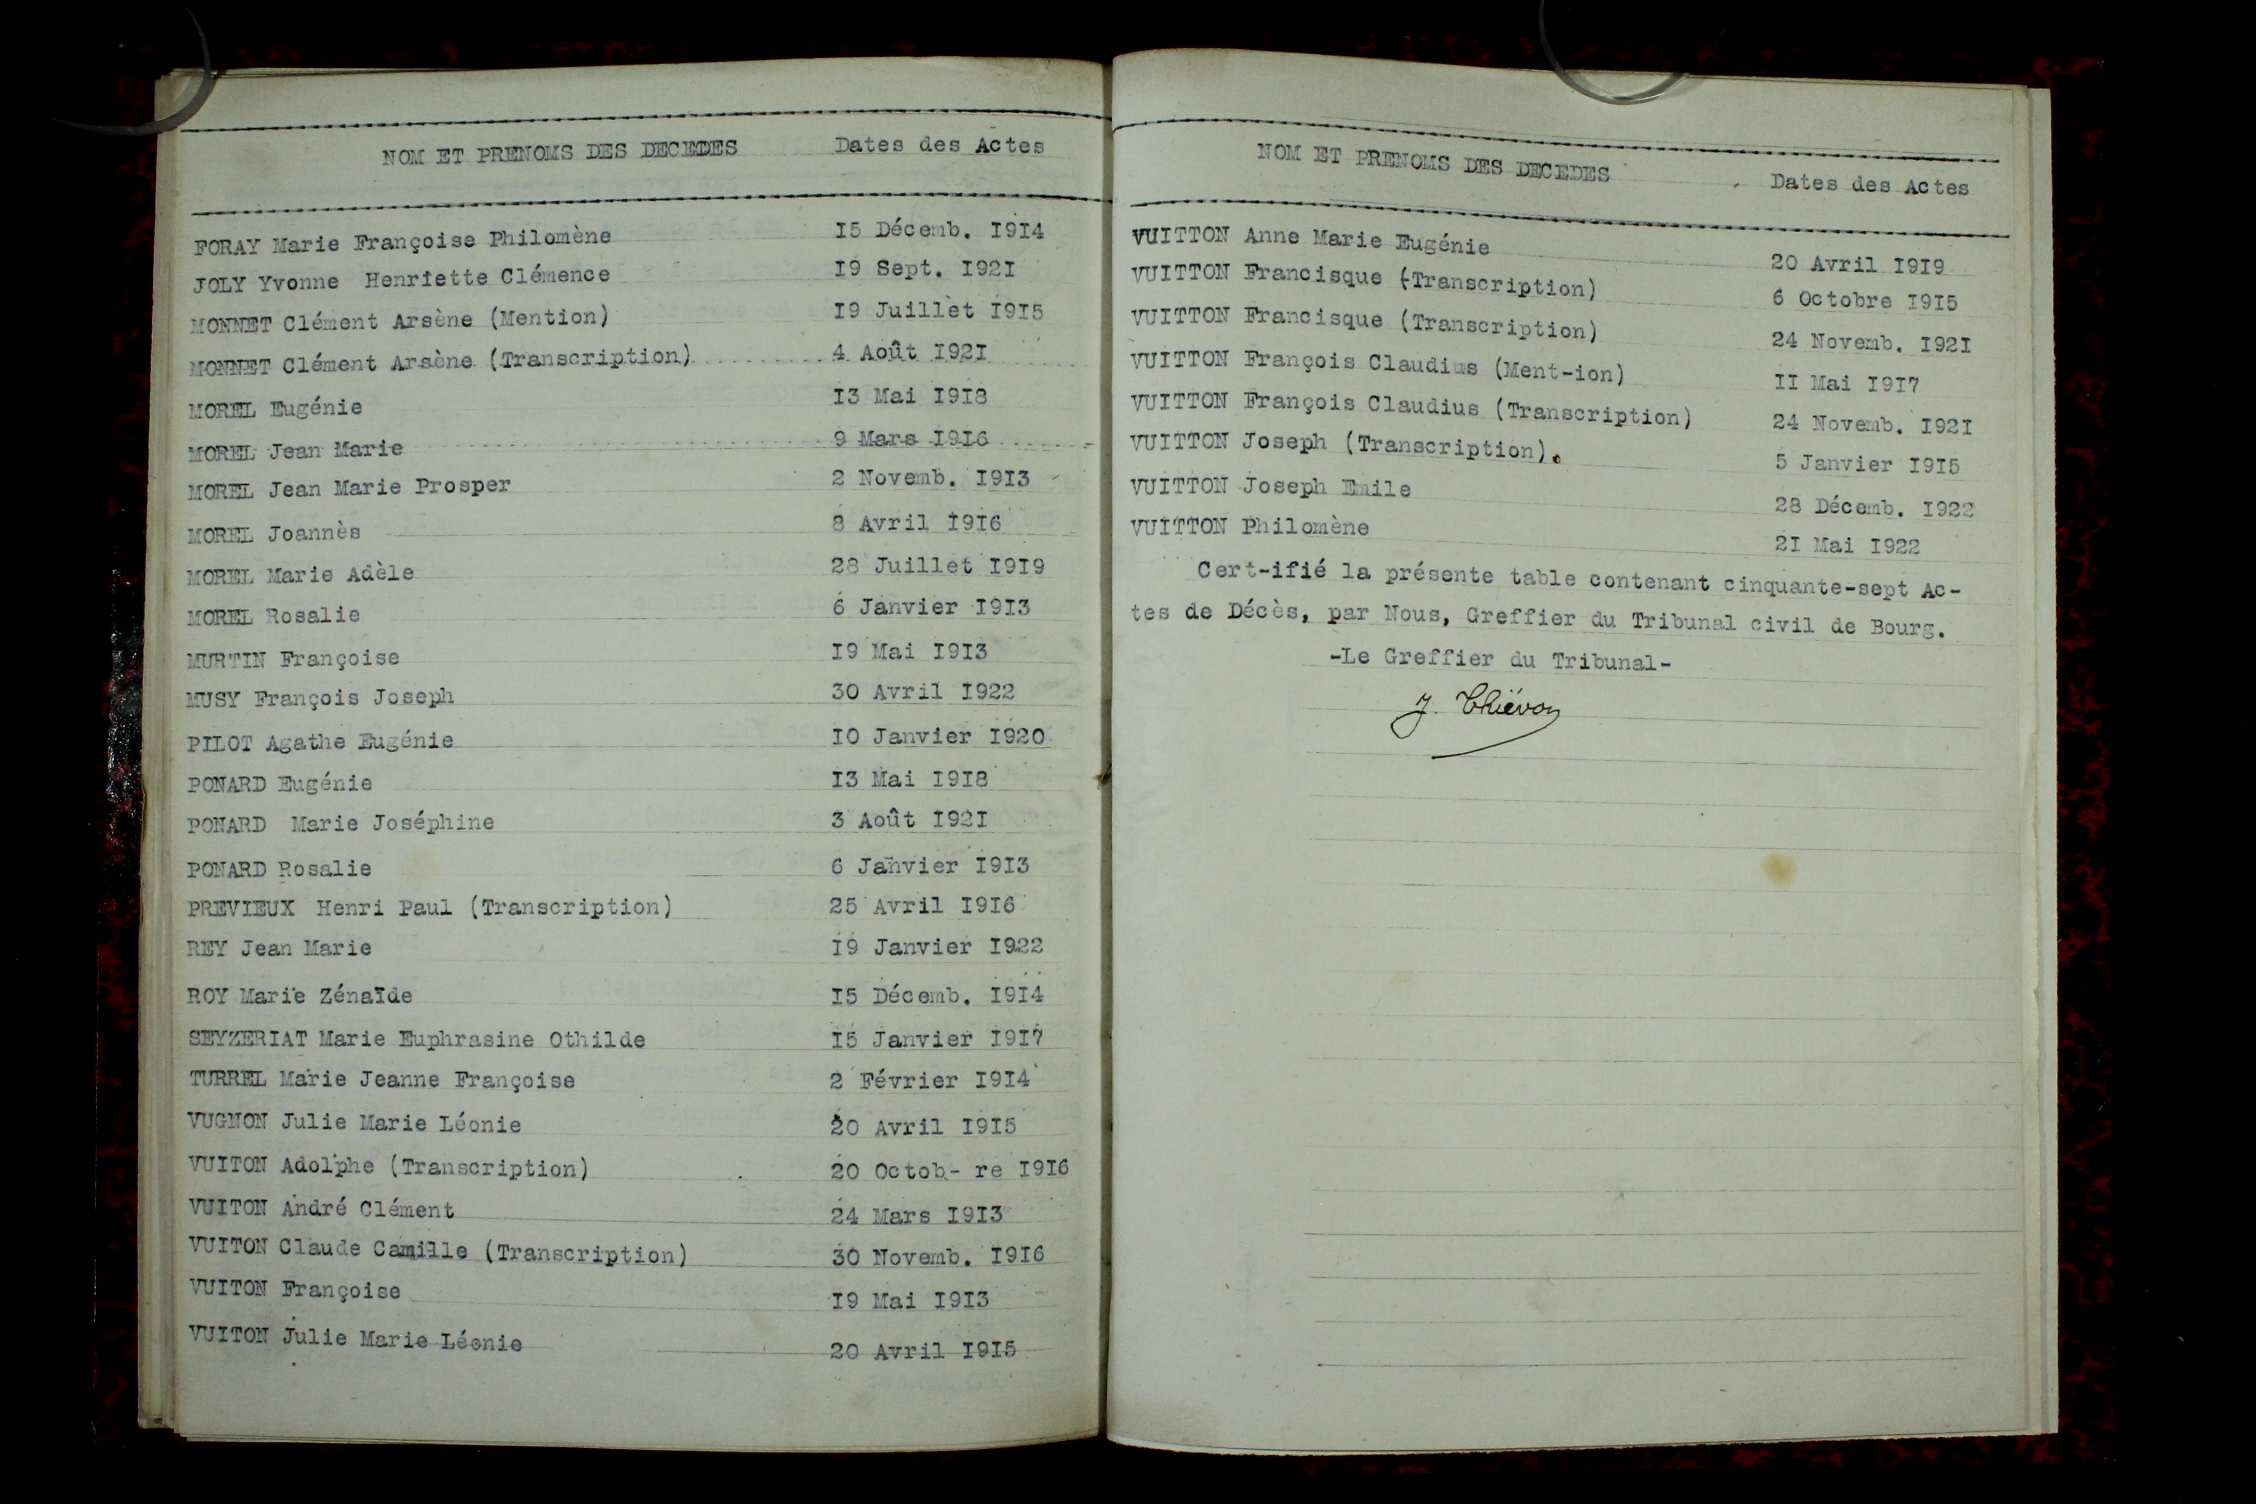 NOM ET PRENOMS DES DECEDES Dates des Actes
FORAY Marie Françoise Philomène 15 Décemb. 1914
JOLY Yvonne Henriette Clémence 19 Sept. 1921
MONNET Clément Arsène (Mention) 19 Juillet 1915
MONNET Clément Arsène (Transcription) 4 Août 1921
MOREL Eugénie 13 Mai 1918
MOREL Jean Marie 9 Mars 1916
MOREL Jean Marie Prosper 2 Novemb. 1913
MOREL Joannès 8 Avril 1916
MOREL Marie Adèle 28 Juillet 1919
MOREL Rosalie 6 Janvier 1913
MURTIN Françoise 19 Mai 1913
MUSY François Joseph 30 Avril 1922
PILOT Agathe Eugénie 10 Janvier 1920
PONARD Eugénie 13 Mai 1918
PONARD Marie Joséphine 3 Août 1921
PONARD Rosalie 6 Janvier 1913
PREVIEUX Henri Paul (Transcription) 25 Avril 1916
REY Jean Marie 19 Janvier 1922
ROY Marie Zénaïde 15 Décemb. 1914
SEYZERIAT Marie Euphrasine Othilde 15 Janvier 1917
TURREL Marie Jeanne Françoise 2 Février 1914
VUGNON Julie Marie Léonie 20 Avril 1915
VUITON Adolphe (Transcription) 20 Octob- re 1916
VUITON André Clément 24 Mars 1913
VUITON Claude Camille (Transcription) 30 Novemb. 1916
VUITON Françoise 19 Mai 1913
VUITON Julie Marie Léonie 20 Avril 1915
NOM ET PRENOMS DES DECEDES Dates des Actes
VUITTON Anne Marie Eugénie 20 Avril 1919
VUITTON Francisque (Transcription) 6 Octobre 1915
VUITTON Francisque (Transcription) 24 Novemb. 1921
VUITTON François Claudius (Ment-ion) 11 Mai 1917
VUITTON François Claudius (Transcription) 24 Novemb. 1921
VUITTON Joseph (Transcription). 5 Janvier 1915
VUITTON Joseph Emile 28 Décemb. 1922
VUITTON Philomène 21 Mai 1922
Cert-ifié la présente table contenant cinquante-sept Ac-
tes de Décès, par Nous, Greffier du Tribunal civil de Bourg.
-Le Greffier du Tribunal-
J. Thiévon